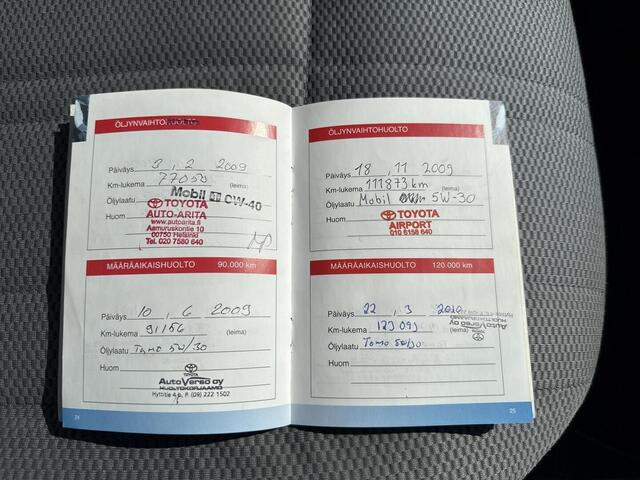 ÖLJYNVAIHTOHUOLTO
Päiväys 3 . 2 2009
Km-lukema 77050 (leima)
Öljylaatu Mobil 1 0W-40
TOYOTA
Huom AUTO-ARITA
www.autoarita.fi
Aamuruskontie 10
00750 Helsinki
Tel. 020 7580 640
MÄÄRÄAIKAISHUOLTO 90.000 km
Päiväys 10 . 6 2009
Km-lukema 91156 (leima)
Öljylaatu 5W/30
Huom
TOYOTA
AutoVerso oy
HUOLTOKORJAAMO
Hyttitie 4 P. (09) 222 1502
24
ÖLJYNVAIHTOHUOLTO
Päiväys 18 . 11 2009
Km-lukema 111873 km (leima)
Öljylaatu Mobil 5W-30
Huom TOYOTA
AIRPORT
010 6158 640
MÄÄRÄAIKAISHUOLTO 120.000 km
Päiväys 22 . 3 2010
Km-lukema (leima)
AutoVerso oy
HUOLTOKORJAAMO
Öljylaatu
Huom
25